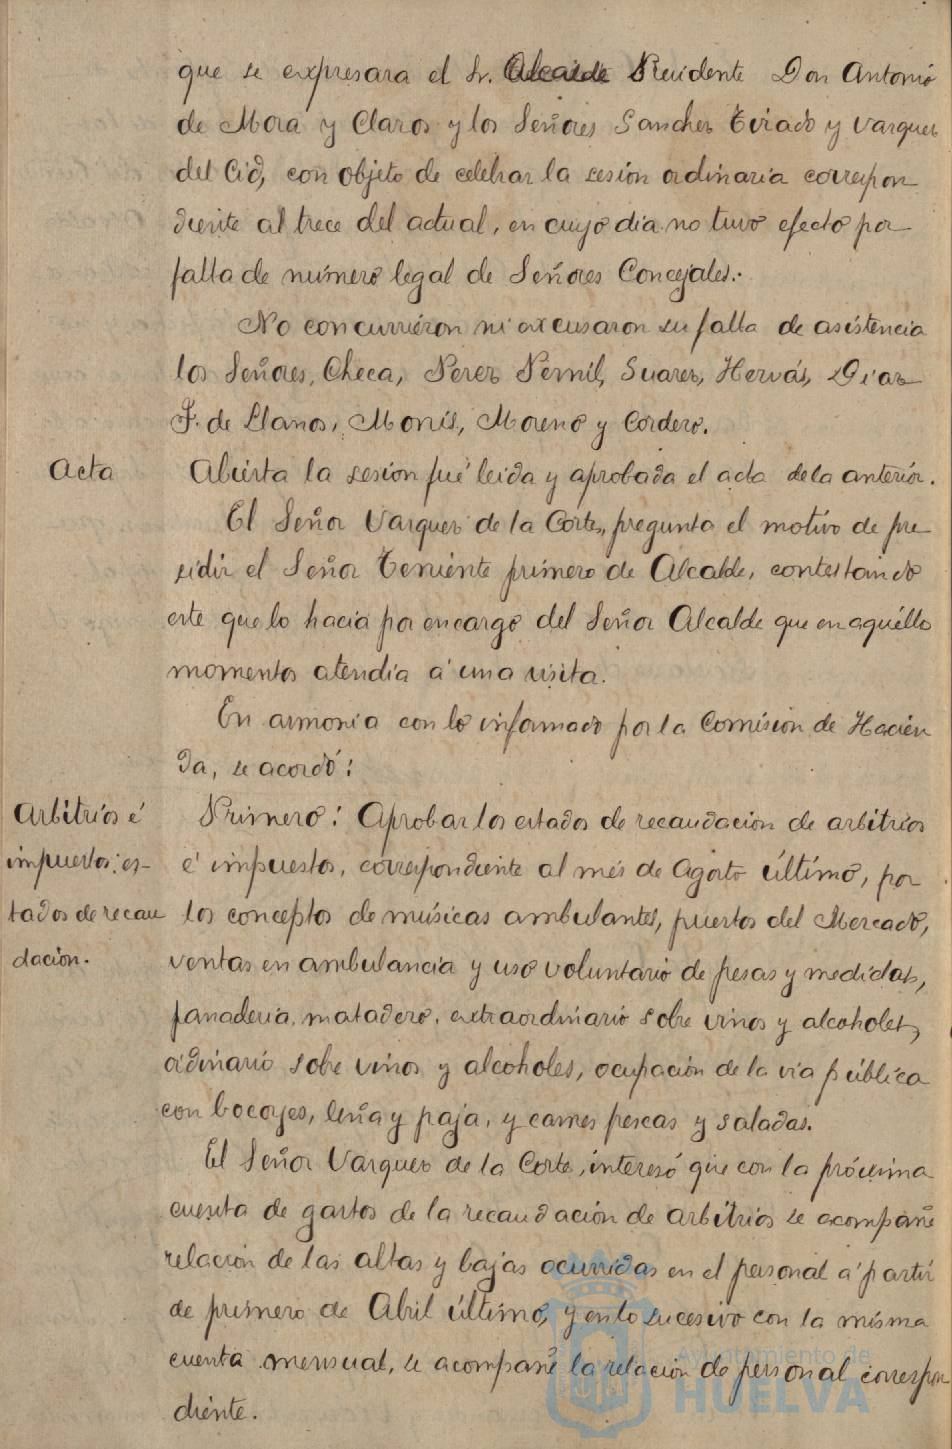 que se expresara el Sr. Alcalde Presidente Don Antonio
de Mora y Claros y los Señores Sanchez Tirado y Vazquez
del Cid, con objeto de celebrar la sesion ordinaria correspon
diente al trece del actual, en cuyo dia no tuvo efecto por
falta de número legal de Señores Concejales.
No concurriéron ni excusaron su falta de asistencia
los Señores, Checa, Perez Pernil, Suarez, Hervás, Diaz
F. de Llanos, Monís, Moreno y Cordero.
Acta
Abierta la sesion fué leida y aprobada el acta de la anterior.
El Señor Vazquez de la Corte, pregunta el motivo de pre
sidir el Señor Teniente primero de Alcalde, contestando
este que lo hacia por encargo del Señor Alcalde que en aquéllo
momentos atendia á una visita.
En armonia con lo informado por la Comision de Hacien
da, se acordó:
Arbitrios é
impuestos: es-
tados de recau
dacion.
Primero: Aprobar los estados de recaudacion de arbitrios
é impuestos, correspondiente al més de Agosto último, por
los conceptos de músicas ambulantes, puestos del Mercado,
ventas en ambulancia y uso voluntario de pesas y medidas,
panaderia, matadero, extraordinario sobre vinos y alcoholes,
ordinario sobre vinos y alcoholes, ocupación de la via pública
con bocoyes, leña y paja, y carnes frescas y saladas.
El Señor Vazquez de la Corte, interesó que con la próxima
cuenta de gastos de la recaudación de arbitrios se acompañe
relación de las altas y bajas ocurridas en el personal á partir
de primero de Abril último, y en lo sucesivo con la misma
cuenta mensual, se acompañe la relación de personal correspon
diente.
Ayuntamiento de
HUELVA